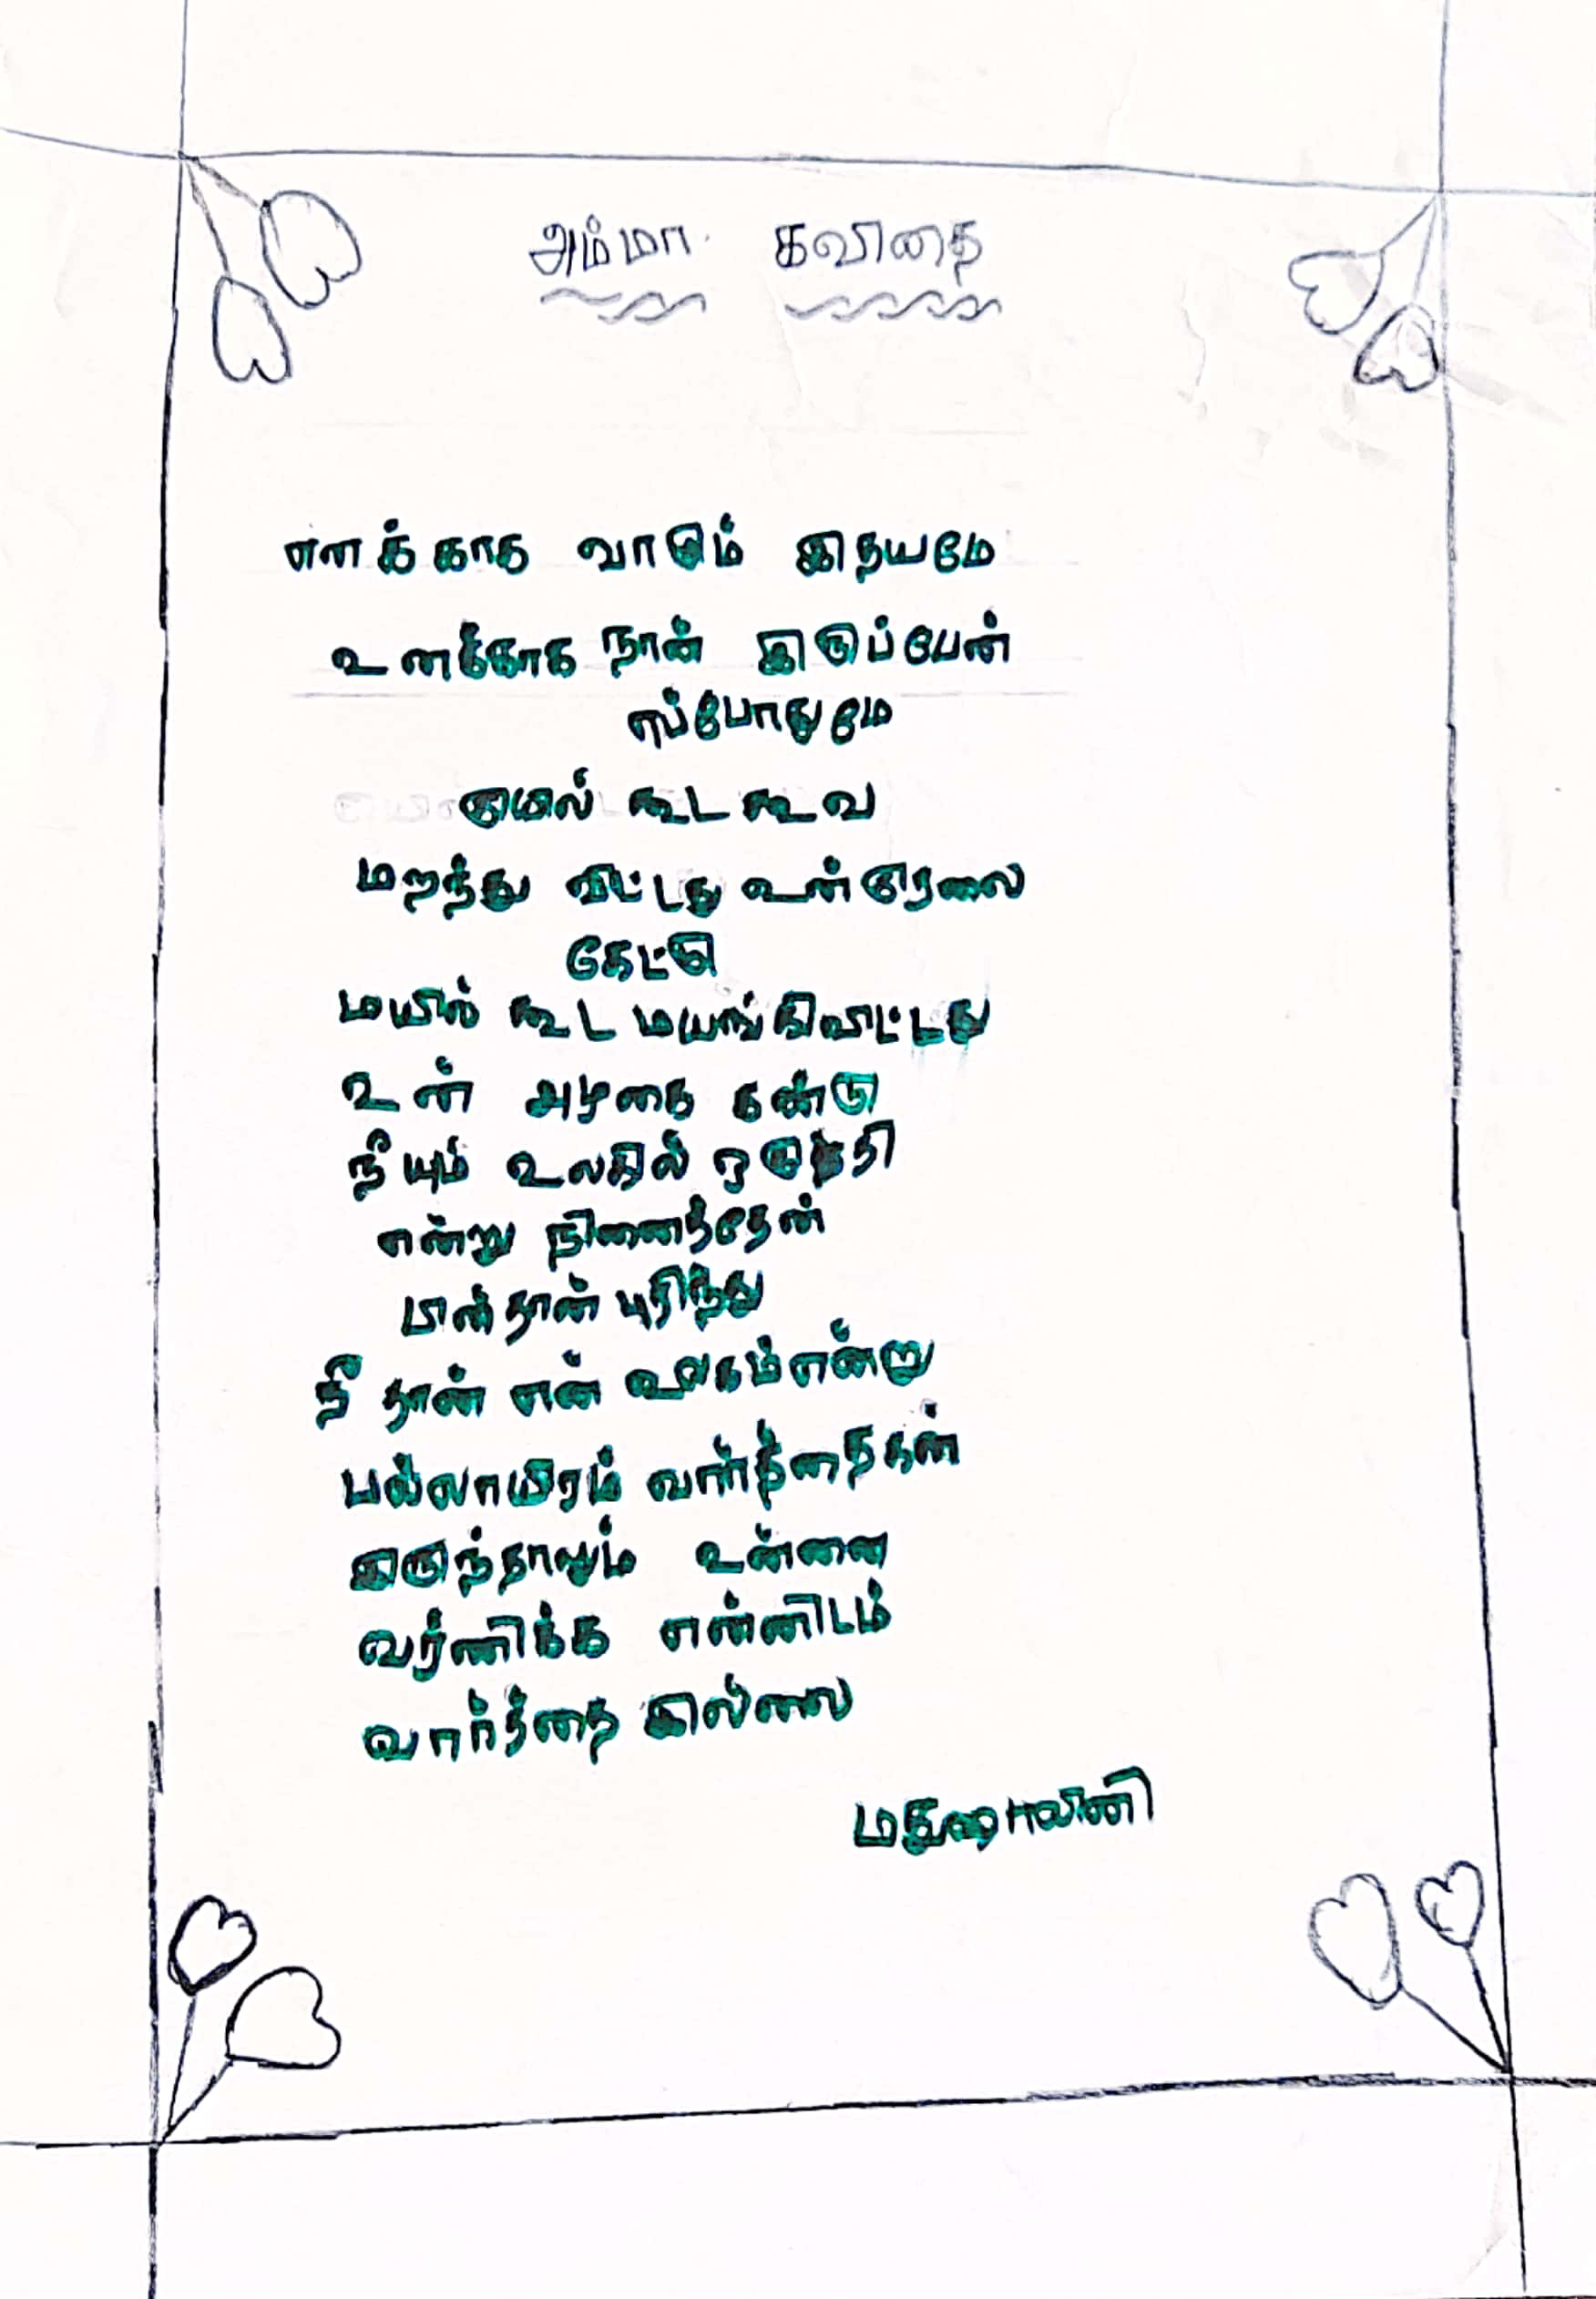 அம்மா கவிதை
எனக்காக வாடும் இதயமே
உனக்காக நான் இருப்பேன்
எப்போதுமே
குயில் கூட கூவ
மறந்து விட்டது உன் குரலை
கேட்டு
மயில் கூட மயங்கிவிட்டது
உன் அழகை கண்டு
நீயும் உலகில் ஒருத்தி
என்று நினைத்தேன்
பின்தான் புரிந்து
நீ தான் என் உலகம் என்று
பல்லாயிரம் வார்த்தைகள்
இருந்தாலும் உன்னை
வர்ணிக்க என்னிடம்
வார்த்தை இல்லை
மதுஷாலினி